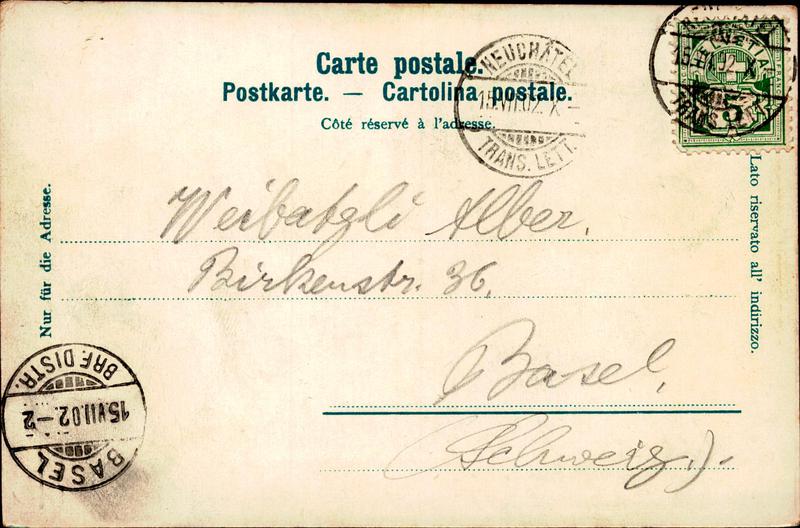 Carte postale.
Postkarte. — Cartolina postale.
Côté réservé à l'adresse.
NEUCHÂTEL
15.VII.02. X
TRANS. LETT.
HELVETIA
5
15.VII.02. X
TRANS. LETT.
Nur für die Adresse.
Lato riservato all' indirizzo.
Weibatzli Alber.
Birkenstr. 36.
Basel.
(Schweiz.).
BASEL
15.VII.02-2
BRF. DISTR.